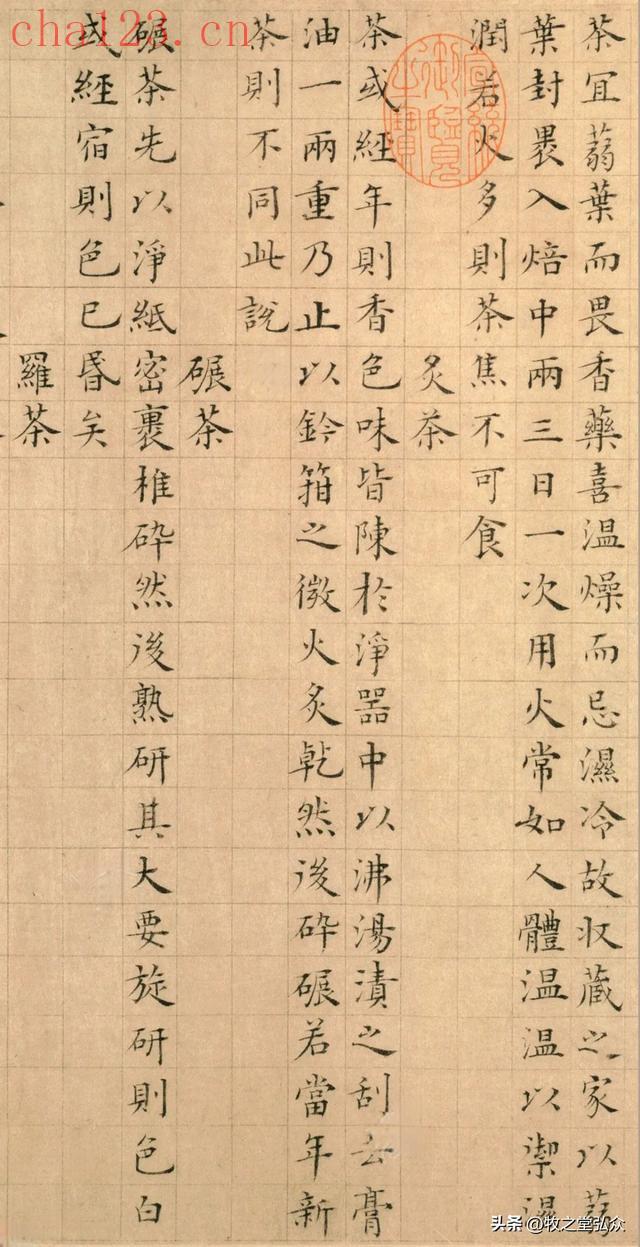 茶冝蒻葉而畏香藥喜温燥而忌濕冷故収蔵之家以蒻
葉封裹入焙中兩三日一次用火常如人體温温以禦濕
潤若火多則茶焦不可食
炙茶
茶或經年則香色味皆陳於淨器中以沸湯漬之刮去膏
油一兩重乃止以鈐箝之微火炙乾然後碎碾若當年新
茶則不同此說
碾茶
碾茶先以淨紙密裹椎碎然後熟研其大要旋研則色白
或經宿則色已昏矣
羅茶
cha123.cn
头条 @牧之堂弘众